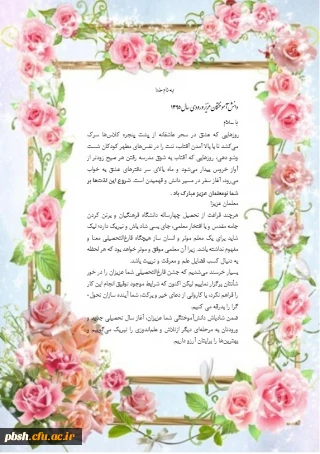 به نام خدا
دانش آموختگان عزیز ورودی سال ۱۳۹۵
با سلام
روزهایی که عشق در سحر عاشقانه از پشت پنجره کلاس‌ها سرک
می‌کشد تا یا بالا آمدن آفتاب، تنت را در نفس‌های مطهر کودکان شست
وشو دهی، روزهایی که آفتاب به شوق مدرسه رفتن هر صبح زودتر از
آواز خروس بیدار می‌شود و ماه بالای سر دفترهای عشق به خواب
می‌رود، آغاز سفر در مسیر دانش و فهمیدن است. شروع این لذت‌ها بر
شما نومعلمان عزیز مبارک باد.
معلمان عزیز!
هرچند فراغت از تحصیل چهارساله دانشگاه فرهنگیان و برتن کردن
جامه مقدس و با افتخار معلمی، جای بسی شادباش و تبریک دارد؛ لیک
شاید برای یک معلم موثر و انسان ساز هیچگاه فارغ‌التحصیلی معنا و
مفهوم نداشته باشد. زیرا آن معلمی موفق و موثر خواهد بود که هر لحظه
به دنبال کسب فضایل علم و معرفت و تربیت باشد.
بسیار خرسند می‌شدیم که جشن فارغ‌التحصیلی شما عزیزان را در خور
شأنتان برگزار نماییم لیکن اکنون که شرایط موجود توفیق انجام این کار
را فراهم نکرد، با کاروانی از دعای خیر و برکت، شما آینده سازان تحول-
گرا را بدرقه می کنیم.
ضمن شادباش دانش‌آموختگی شما عزیزان، آغاز سال تحصیلی جدید و
ورودتان به مرحله‌ای دیگر ازتلاش و علم‌اندوزی را تبریک می‌گوییم و
بهترین‌ها را برایتان آرزو داریم.
pbsh.cfu.ac.ir